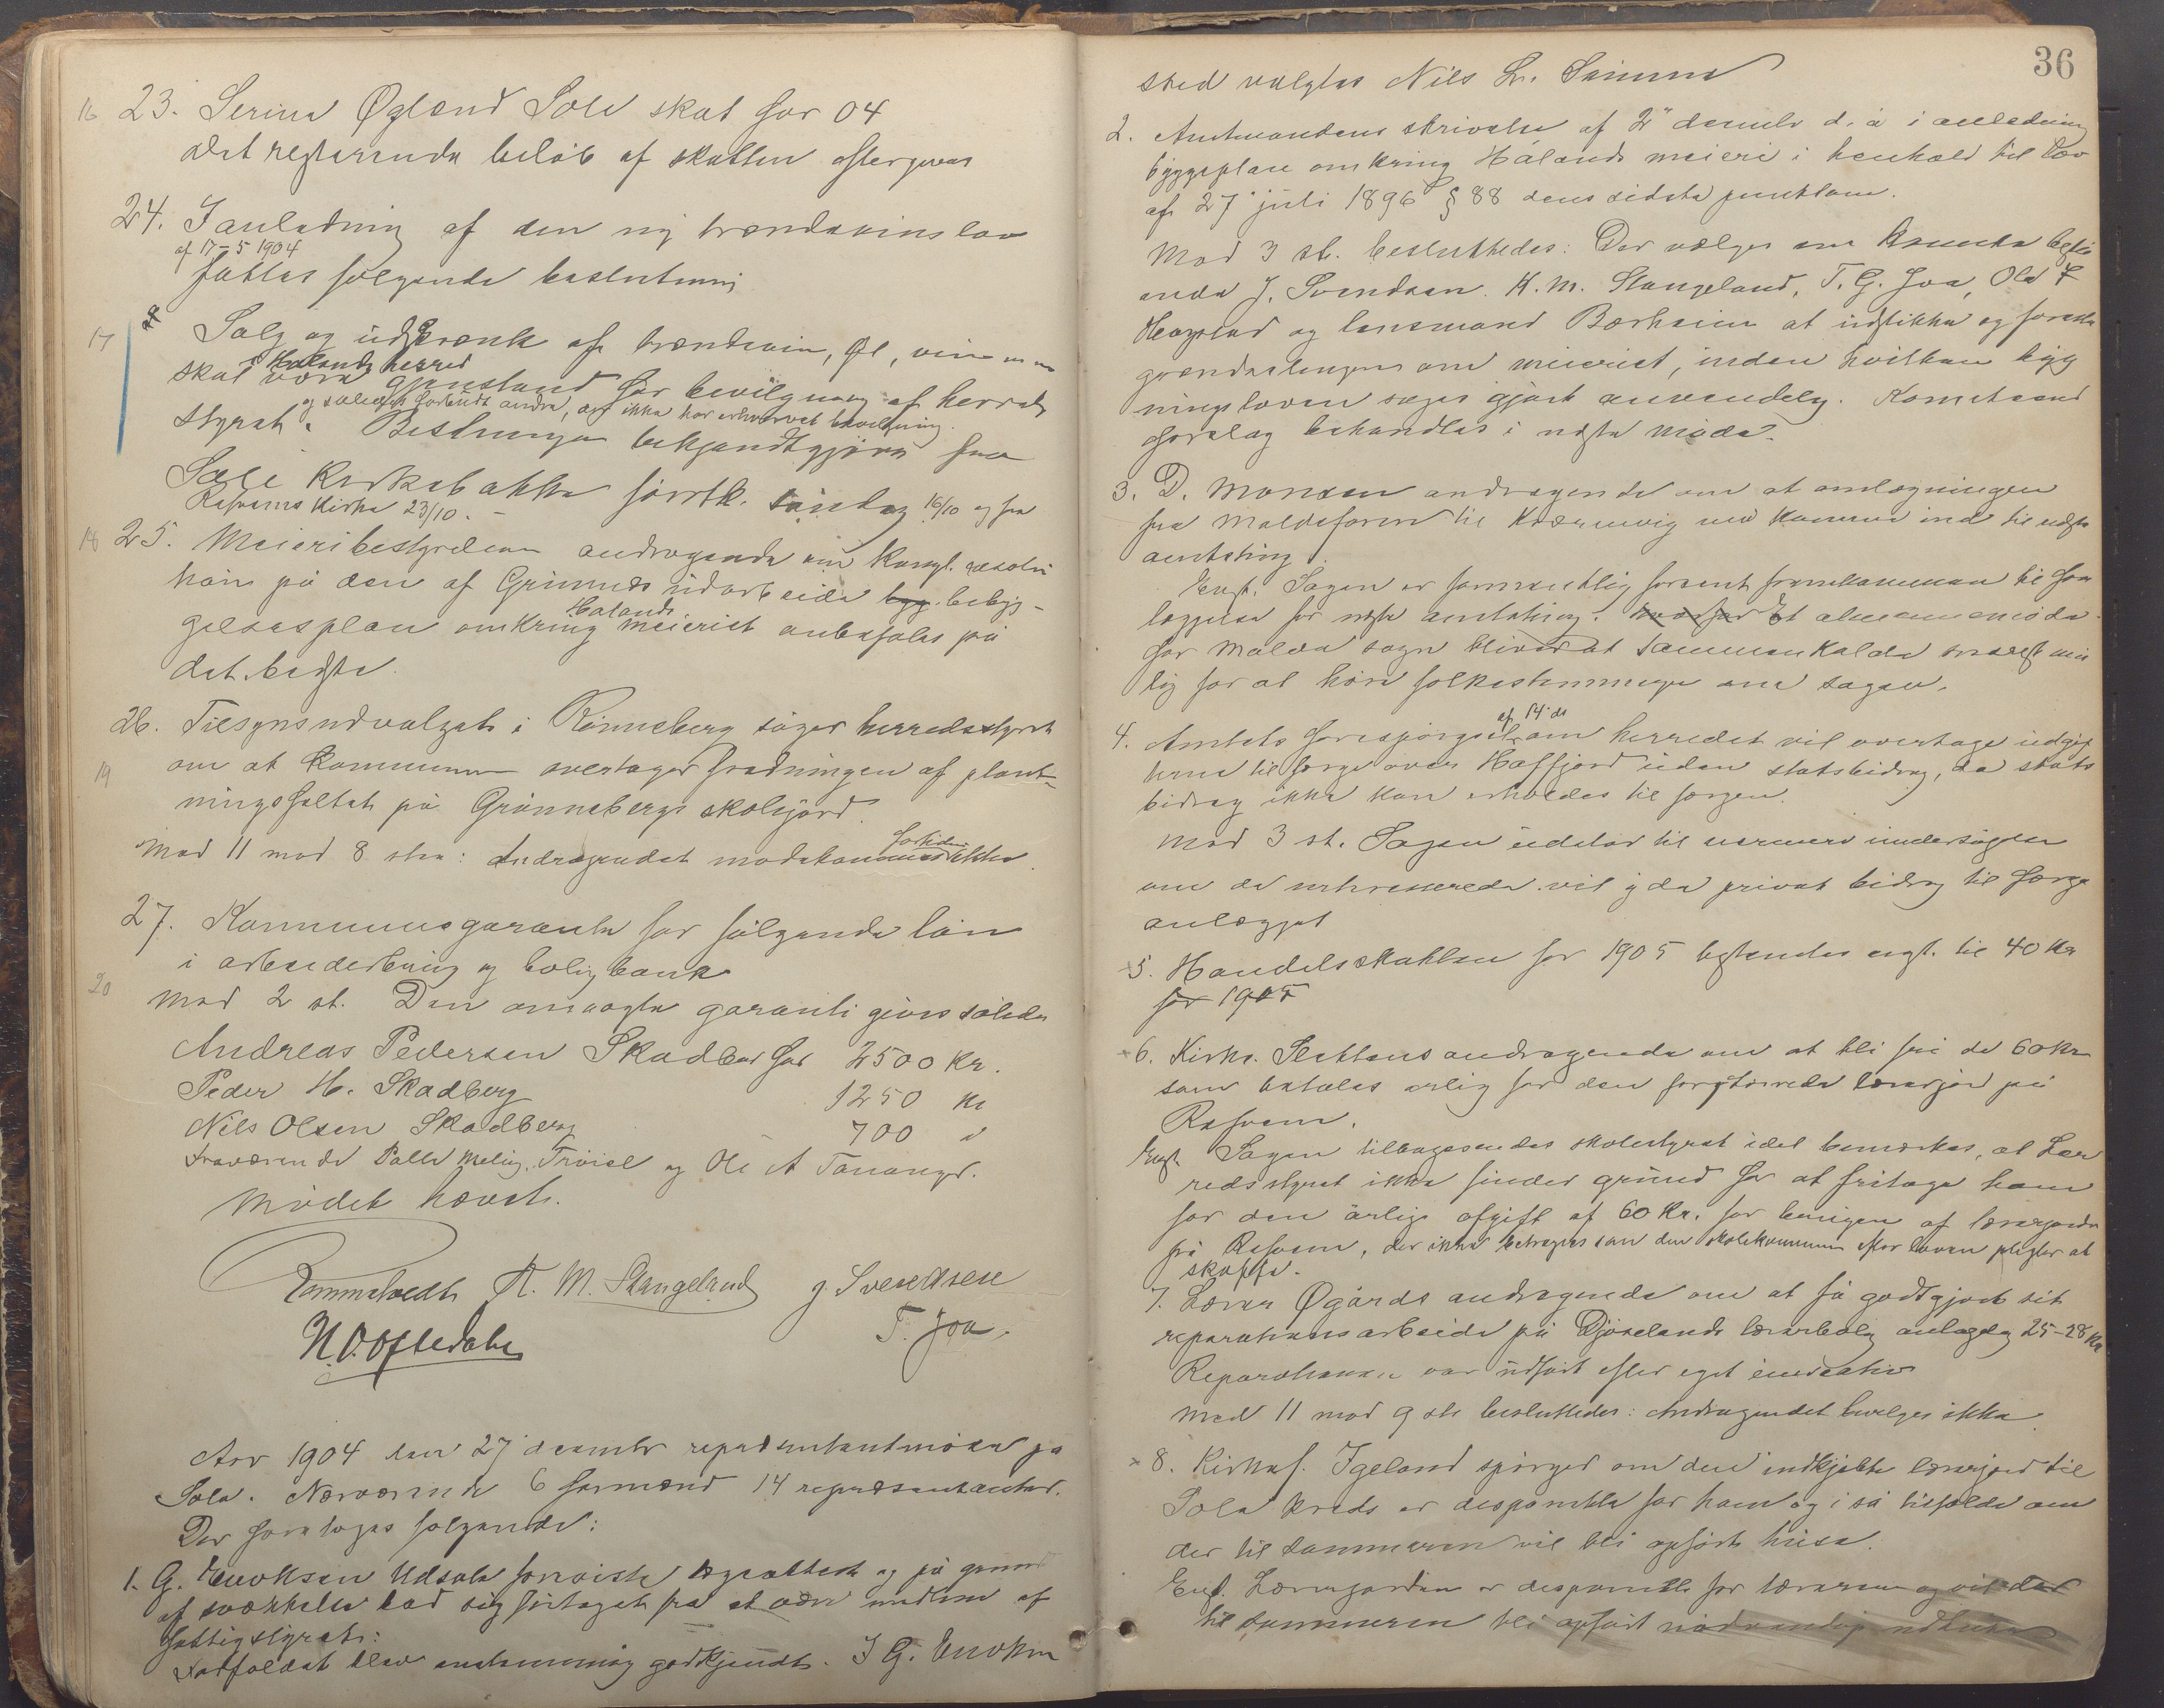 16 23. Serina Øgland Sole skat for 04
det resterende beløb af skatten eftergives
24. I anledning af den ny brændevinslov
af 17-5 1904
fattes følgende beslutning
17 Salg og udskjænk af brændevin, øl, vin m m
i Haalands herred
skal være gjenstand for bevilgning af herreds
og således forbudt andre, der ikke har erhvervet bevilgning.
styret. Beslutningen bekjendtgjøres fra
Sole Kirkebakke førstk. søndag 16/10 og fra
Ræfsems Kirke 23/10. -
18 25. Meieribestyrelsens andragende om kongl. resolu
tion på den af Grimnes udarbeide byg. bebyg-
Hålands
gelsesplan omkring meieriet anbefales på
det bedste.
26. Tilsynsudvalget i Rønneberg søger herredsstyret
19 om at kommunen overtager fredningen af plant-
ningsfeltet på Grønnebergs skolejord.
fortiden
Med 11 mod 8 ste: Andragendet imødekommes ikke.
27. Kommunegaranti for følgende lån
i arbeiderbrug og boligbank
20 Mod 2 st. Den ansøgte garanti gives således
Andreas Pedersen Skadberg for 2500 Kr.
Peder H. Skadberg 1250 Kr
Nils Olsen Skadberg 700 "
Fraværende Palle Meling, Trövel og Ole A Tananger.
Mødet hævet.
Tømmstvedt K. M. Stangeland J. Svendsen
N. O. Oftedahl T. Joa.
Aar 1904 den 27 december repræsentantmøde på
Sola. Nærværende 6 formænd 14 repræsentanter.
Der foretoges følgende:
1. G. Enoksen Udsola foreviste lægeattest og på grund
af svækkelse bad sig fritaget fra at være medlem af
fattigstyret:
Forfaldet blev enstemmig godkjendt. I G. Enoksen
36
sted valgtes Nils L. Sømme
2. Amtmandens skrivelse af 2" decmbr d. å i anledning
byggeplan omkring Hålands meieri i henhold til lov
af 27 juli 1896 § 88 dens sidste punktum.
Mod 3 st. besluttedes: Der vælges en komite bestå
ende J. Svendsen. K. M. Stangeland, T. G. Joa, Ole T
Haugstad og lensmand Bærheim at udstikke og foreslå
grændselinjen om meieriet, inden hvilken byg
ningsloven søges gjort anvendelig. Komiteens
forslag behandles i næste møde.
3. D. Monsen andragende om at omlægningen
fra Moldeforen til Kværnevig må komme ind til næste
amtsting.
Enst. Sagen er formentlig forsent fremkommen til fore
læggelse for næste amtsting. hvorfor Et almenmøde
for Målde sogn bliver at sammenkalde snarest mu
lig for at høre folkestemningen om sagen.
af 14 ds
4. Amtets forespørgsel om herredet vil overtage udgif
terne til færge over Hafsfjord uden statsbidrag, da stats
bidrag ikke kan erholdes til færgen.
Mod 3 st. Sagen udstår til nærmere undersøgelse
om de interesserede vil yde privat bidrag til færge
anlægget
5. Handelsskatten for 1905 bestemtes enst. til 40 Kr
for 1905
6. Kirkes. Slettens andragende om at bli fri de 60 Kr
som betales årlig for den forstørrede lærerjord på
Ræfsem.
Enst. Sagen tilbagesendes skolestyret idet bemærkes, at her
redsstyret ikke finder grund for at fritage ham
for den årlige afgift af 60 Kr. for brugen af lærerjorden
på Ræfsem, der ikke betragtes som den skolekommunen efter loven pligter at
skaffe.
7. Lærer Øgårds andragende om at få godtgjort sit
reparationsarbeide på Djøselands lærerbolig anlagdes 25-28 Kr
Reparationen var udført efter eget initiativ
Med 11 mod 9 ste besluttedes: Andragendet bevilges ikke.
8. Kirkes. Igeland spørger om den indkjøbte lærerjord til
Sola kreds er disponible for ham og i så tilfælde om
der til sommeren vil bli opført huse.
Enst. Lærerjorden er disponible for læreren og vil der
til sommeren bli opført nødvendige udhuse